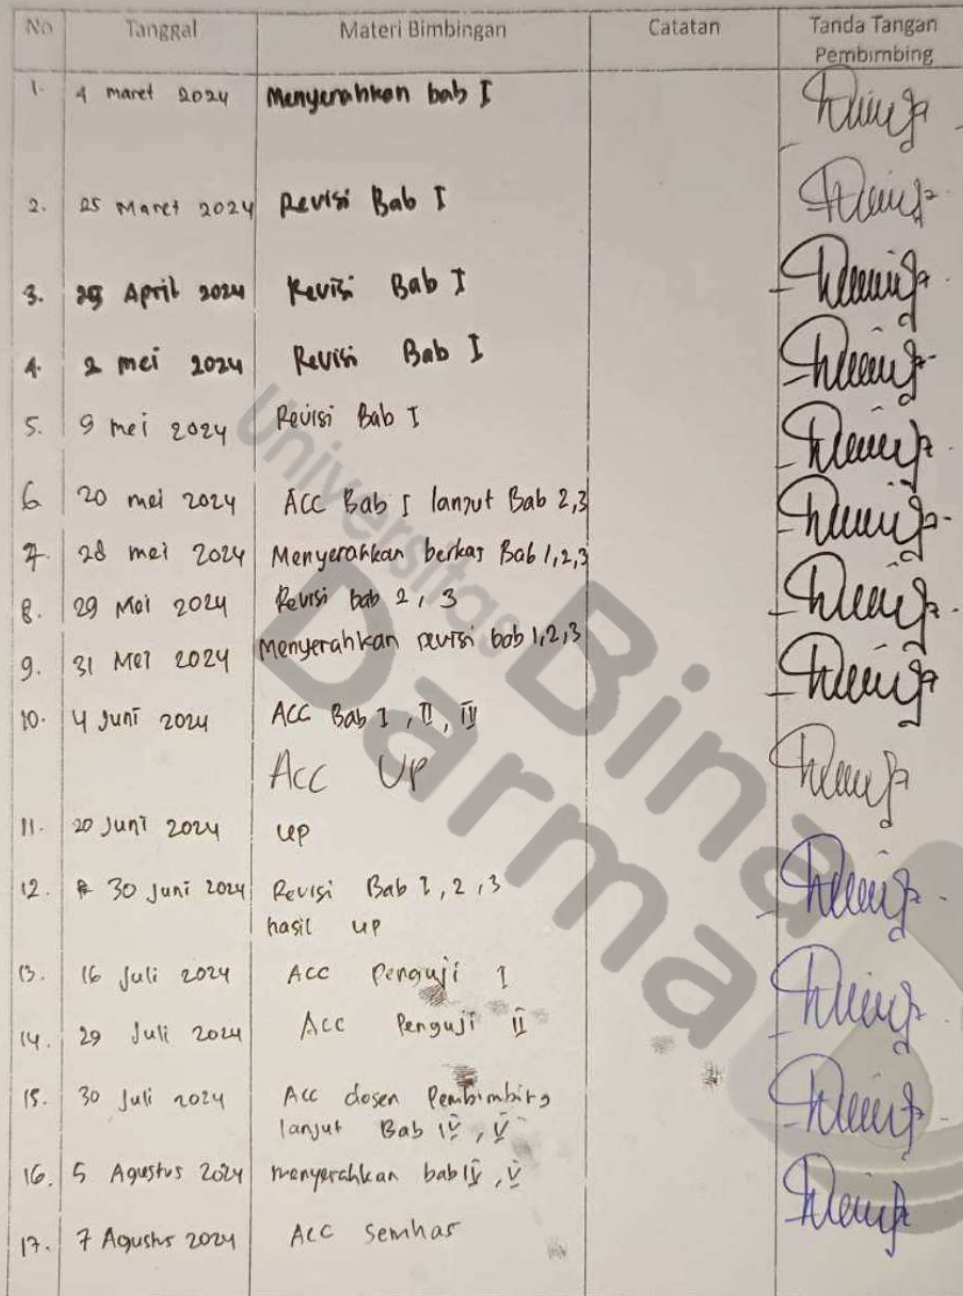 No Tanggal Materi Bimbingan Catatan Tanda Tangan
Pembimbing
1. 4 maret 2024 Menyerahkan bab I
2. 25 Maret 2024 Revisi Bab I
3. April 2024 Revisi Bab I
4. 2 mei 2024 Revisi Bab I
5. 9 mei 2024 Revisi Bab I
6 20 mei 2024 ACC Bab I lanjut Bab 2,3
7. 28 mei 2024 Menyerahkan berkas Bab 1,2,3
8. 29 Mei 2024 Revisi bab 2, 3
9. 31 Mei 2024 Menyerahkan revisi bab 1,2,3
10. 4 Juni 2024 ACC Bab I, II, III
Acc UP
11. 20 Juni 2024 UP
12. 30 Juni 2024 Revisi Bab 1, 2, 3
hasil UP
13. 16 Juli 2024 ACC Penguji I
14. 29 Juli 2024 Acc Penguji II
15. 30 Juli 2024 Acc dosen Pembimbing
lanjut Bab IV, V
16. 5 Agustus 2024 menyerahkan bab IV, V
17. 7 Agustus 2024 ACC semhas
Universitas
Bina
Darma